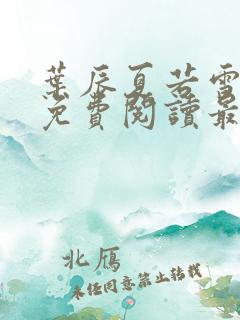 葉辰夏若雪
免費閱讀最
北雁
未经同意禁止转载